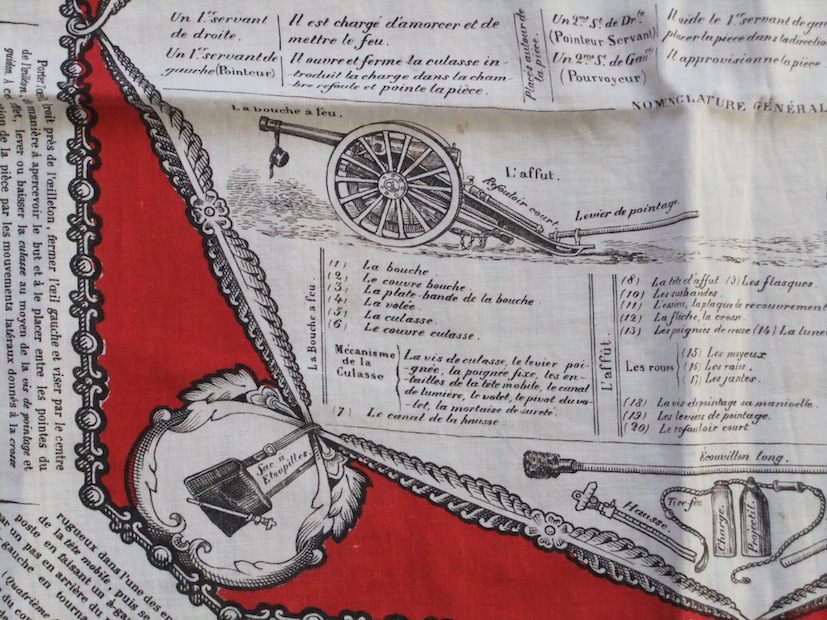 Un 1.er servant
de droite.
Il est chargé d'amorcer et de
mettre le feu.
Un 1.er servant de
gauche (Pointeur)
Il ouvre et ferme la culasse in-
troduit la charge dans la cham-
bre refoule et pointe la pièce.
Placés autour de
la pièce.
Un 2.me St. de Dr.te
(Pointeur Servant)
Un 2.me St. de Gau.che
(Pourvoyeur)
Il aide le 1.er servant de gau
placer la pièce dans la directio
Il approvisionne la pièce
NOMENCLATURE GÉNÉRAL
La bouche à feu.
L'affut.
Refouloir court.
Levier de pointage.
La Bouche à feu
(1) La bouche.
(2) Le couvre bouche.
(3) La plate-bande de la bouche
(4) La volée.
(5) La culasse.
(6) Le couvre culasse.
Mécanisme
de la
Culasse
La vis de culasse, le levier poi-
gnée, la poignée fixe, les en-
tailles de la tête mobile, le canal
de lumière, le volet, le pivot du vo-
let, la mortaise de sureté.
(7) Le canal de la hausse.
L'affût.
(8) La tête d'affut (9) Les flasques.
(10) Les susbandes.
(11) L'essieu, la plaque de recouvrement
(12) La flèche, la crosse.
(13) Les poignées de crosse (14) La lune
Les roues
(15) Les moyeux
(16) Les rais.
(17) Les jantes.
(18) La vis de pointage sa manivelle.
(19) Les leviers de pointage.
(20) Le refouloir court
Ecouvillon long.
Hausse.
Tire feu
Charge.
Projectil.
Sac à
Etoupilles.
droit près de l'œilleton, fermer l'œil gauche et viser par le centre
de l'œilleton, manière à apercevoir le but et à le placer entre les pointes du
guidon. A cet effet, lever ou baisser la culasse au moyen de la vis de pointage et
de la pièce par les mouvements latéraux donnés à la crosse
rugueux dans l'une des en
de la tête mobile, puis se
poste en faisant un à-ga
par un pas en arrière du
gauche en tourna
(Quatrième